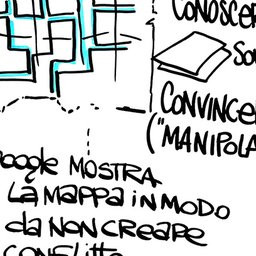 CONOSCER
SO
CONVINCE
("MANIPOLA
oogle MOSTRA
LA MAPPA IN MODO
da NON CREARE
CONFLITTO